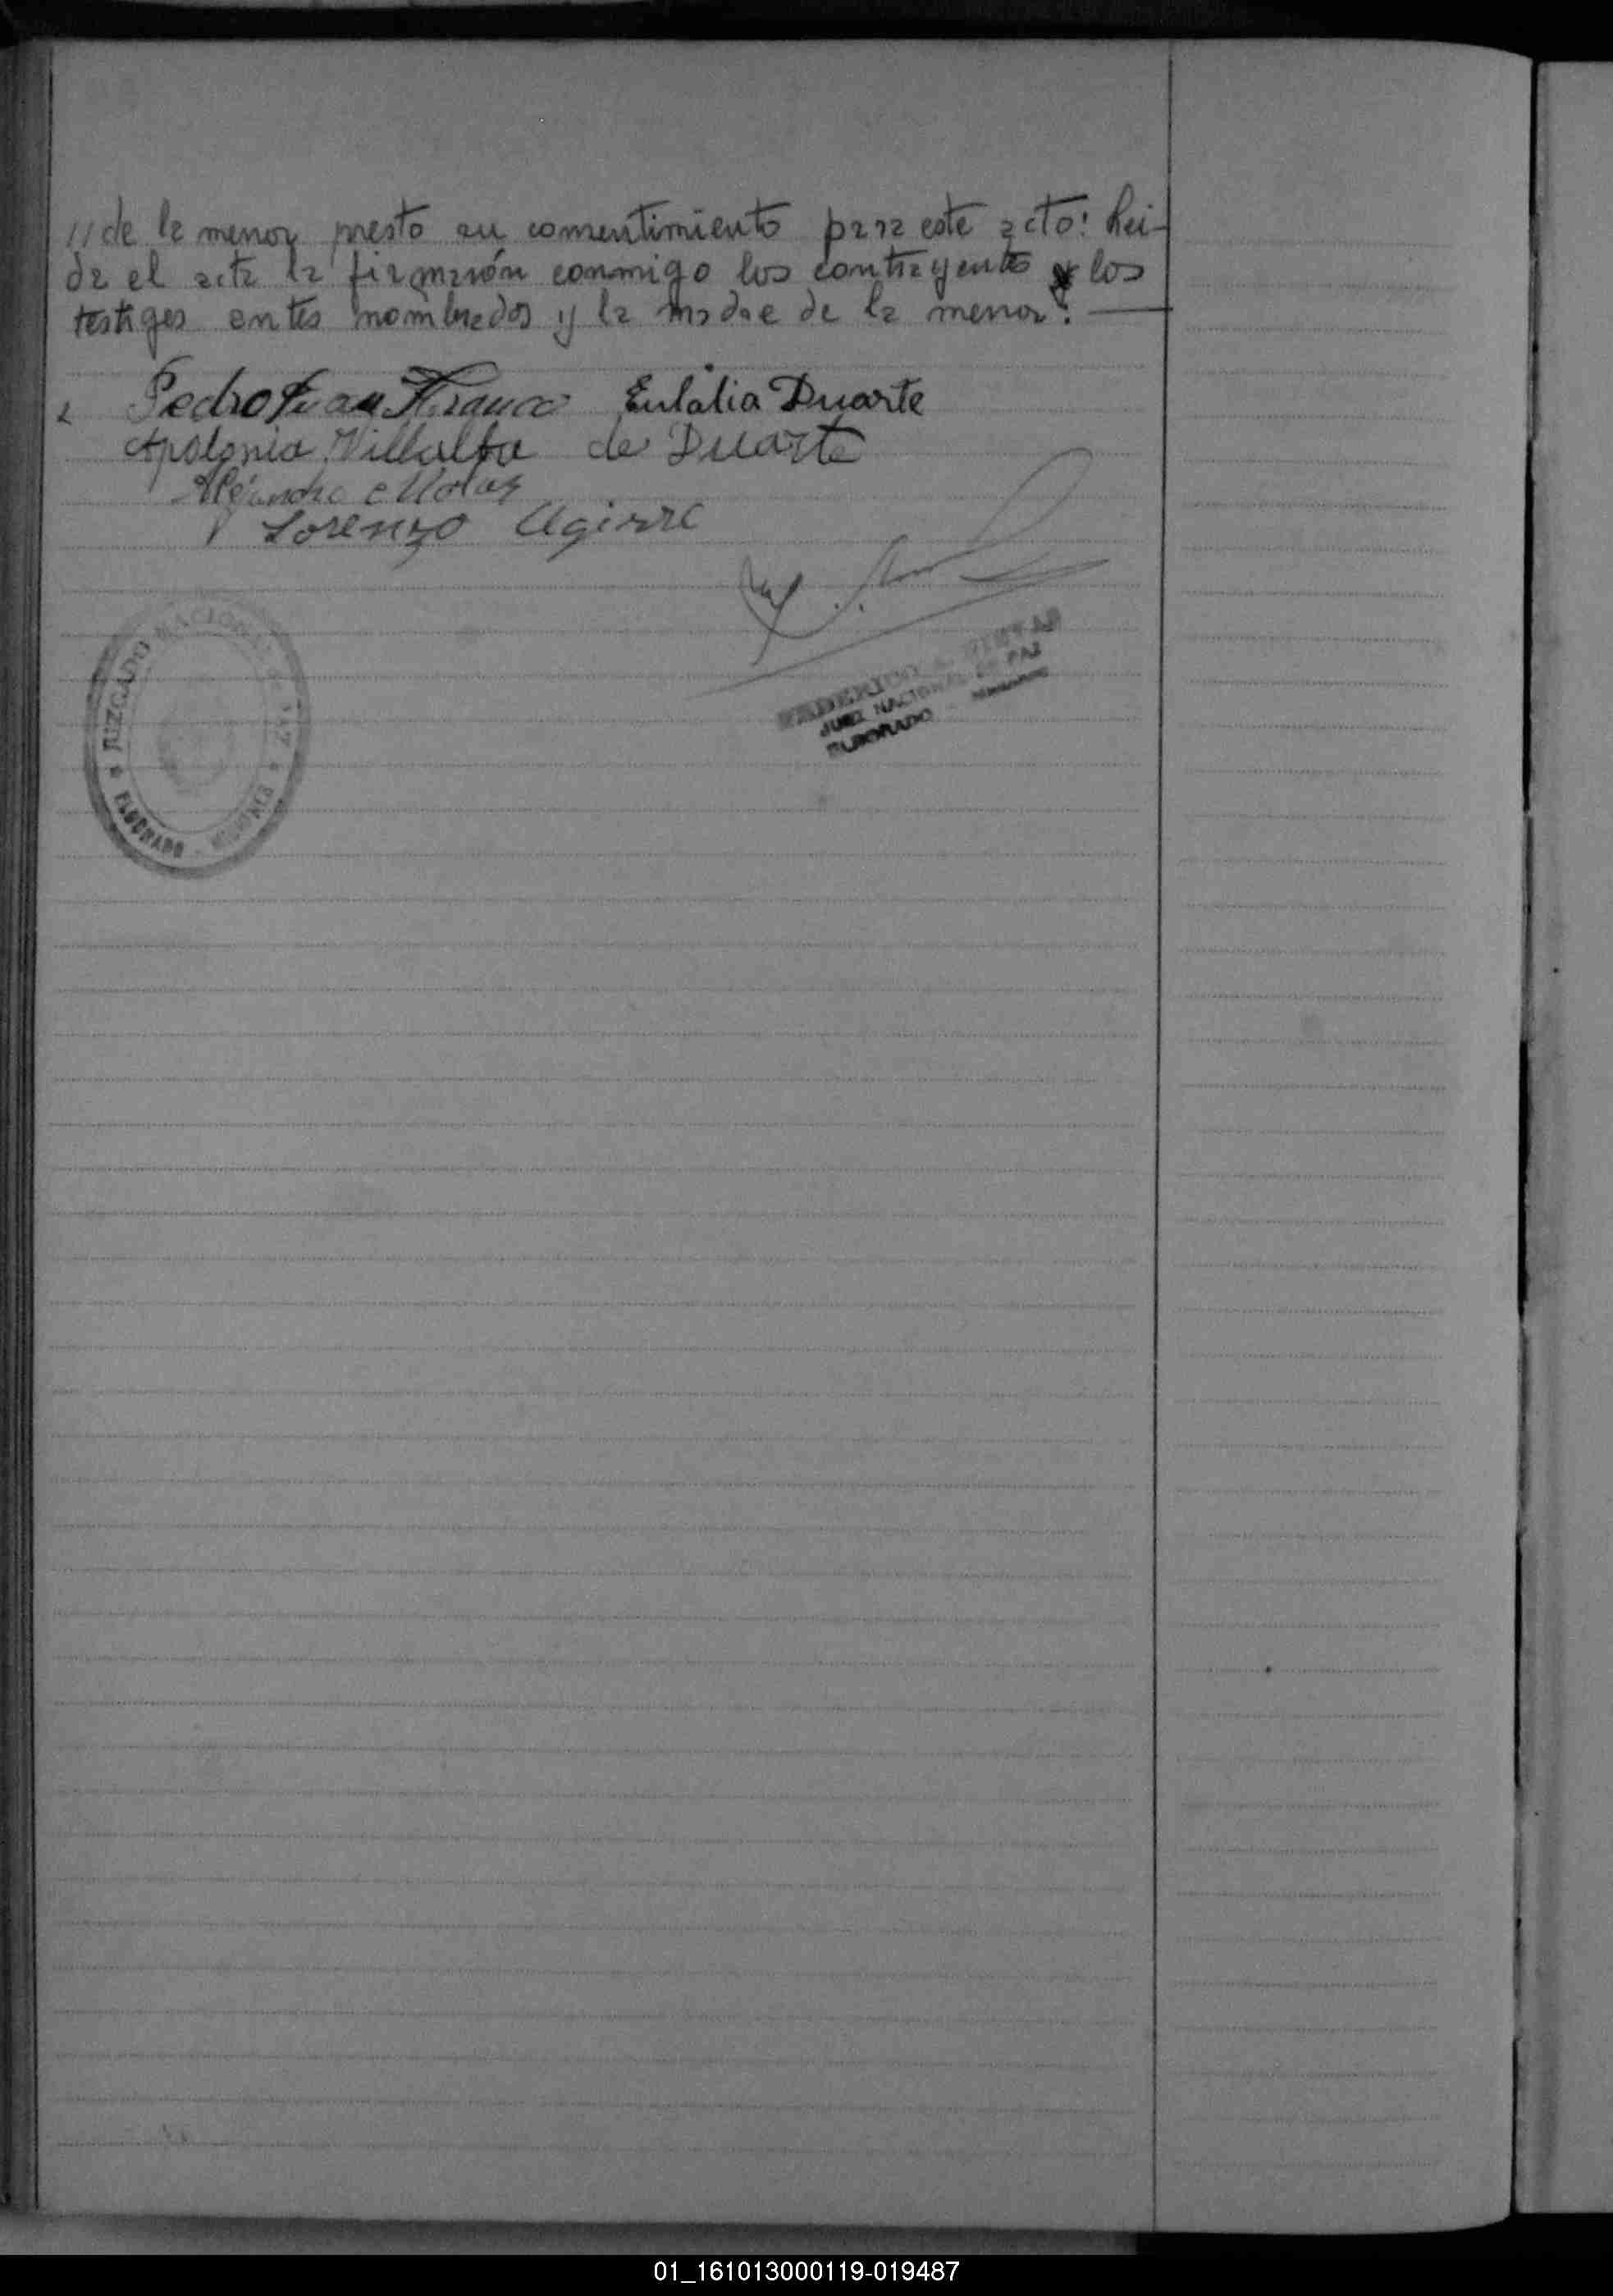 //de la menor presto su consentimiento para este acto: Lei-
da el acta la firmarón conmigo los contrayentes y los
testigos antes nombrados y la madre de la menor.
Pedro Juan Franco Eulalia Duarte
Apolonia Villalba de Duarte
Alejandro Molas
Lorenzo Agirre
JUZGADO NACIONAL DE PAZ
ELDORADO - MISIONES
FEDERICO
JUEZ NACIONAL DE PAZ
ELDORADO MISIONES
01_161013000119-019487